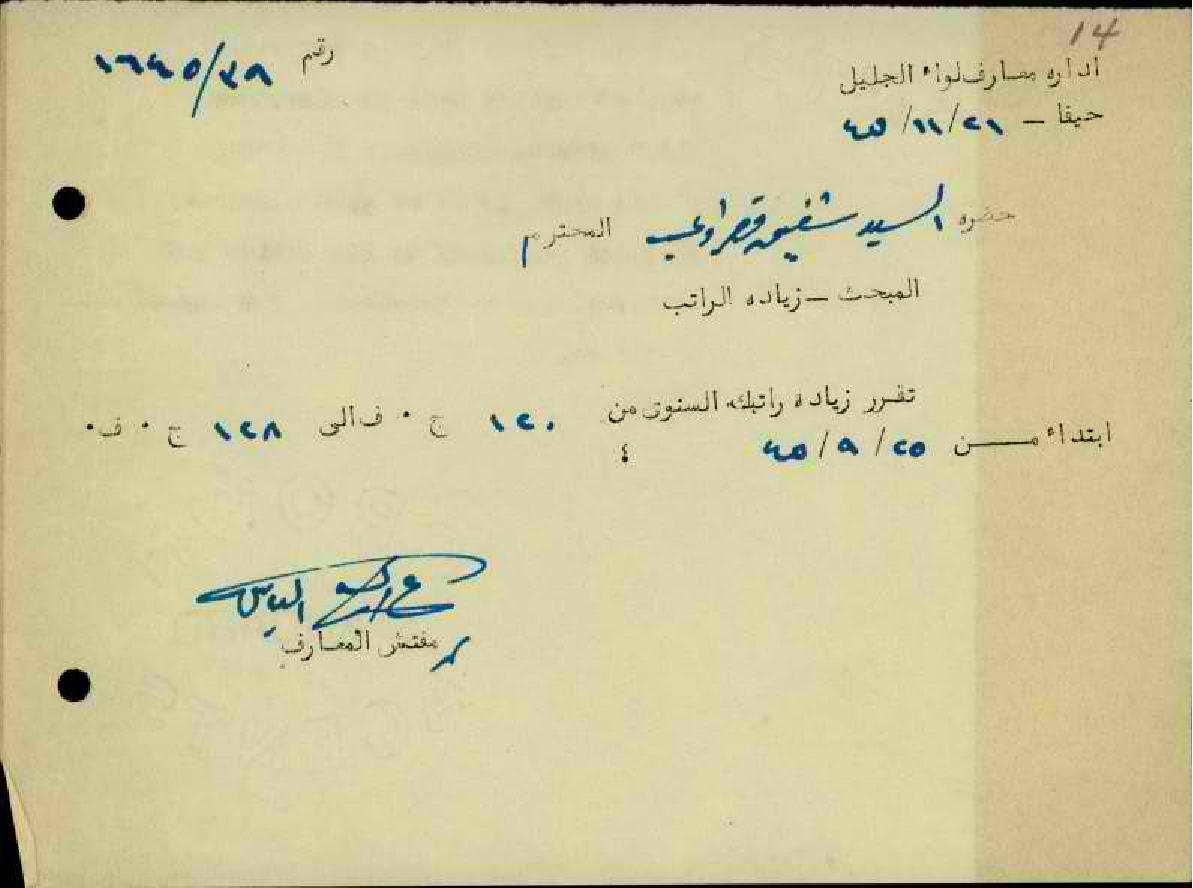 14
اداره معارف لواء الجليل
رقم ١٦٤٥/٣٨
حيفا - ٢١/١١/٤٥
حضره السيد شفيق المحترم
المبحث - زياده الراتب
تقرر زيادة راتبك السنوي من ١٢٠ ج ٠ ف الى ١٢٨ ج ٠ ف٠
ابتداء من ٢٥/٩/٤٥
٤
الياس
مفتش المعارف